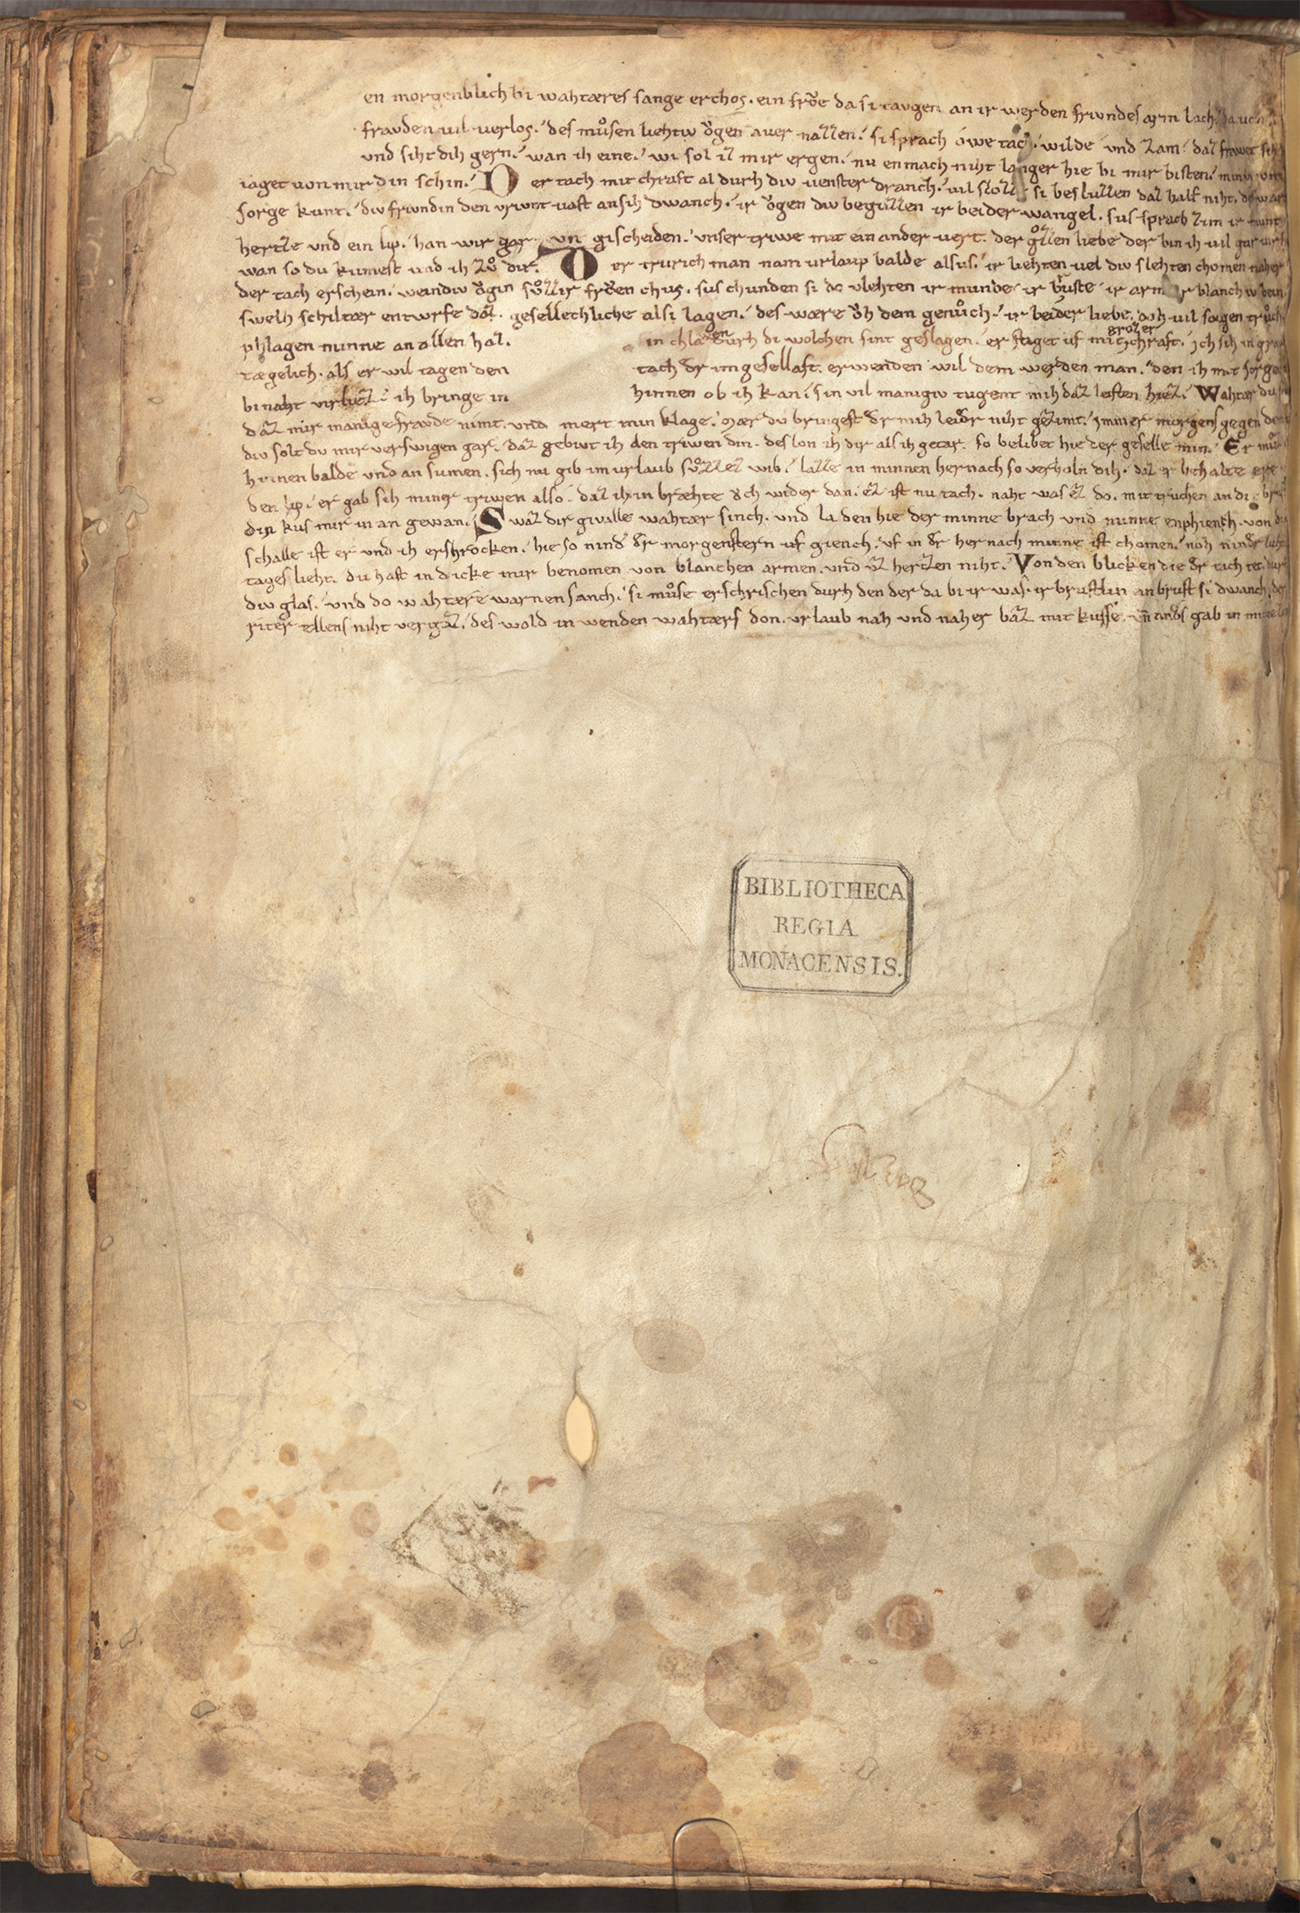 en morgenblich bi wahtæres sange erchos. ein frowe da si tavgen an ir werden frivndes arm lach
fravden vil verlos. des mvͦsen liehtiv ovgen aver nazzen. si sprach owe tach. wilde vnd zam daz frawet sih
vnd siht dih gern. wan ih eine. wi sol iz mir ergen. nu enmach niht langer hie bi mir bisten. min
iaget von mir din schin. Der tach mit chraft al durh div venster dranch. vil slozze si besluzzen daz half niht. des wart
sorge kunt. div frivndin den vrivnt vast an sih dwanch. ir ovgen div beguzzen ir beider wangel. sus sprach zim ir munt
hertze vnd ein lip. han wir gar vngischeiden. vnser triwe mit ein ander vert. der groͮzen liebe der bin ih vil gar
wan so du kumest vnd ih zvͦ dir. Der trurich man nam vrlaup balde alsus. ir liehten vel div slehten chomen naher
der tach erschein. weindiv ovgin suͦzzir frowen chus. sus chunden si do vlehten ir munde ir bruste ir arm ir blanchiv
swelh schiltær entwrfe daz. gesellechliche als i lagen. des wære ovh dem genuͦch. ir beider liebe doh vil sorgen
phlagen minne an allen haz. in chlawen durh di wolchen sint geslagen. er stiget uf mit grozer chraft. ich sih in
tægelich. als er wil tagen den tach der im gesellaft. erwenden wil dem werden man. den ih mit sorgen
bi naht verliez. ih bringe in hinnen ob ih kan. sin vil manigiv tugent mih daz leisten hiez. Wahtær du
daz mir manige fravde nimt. vnd mert min klage. mær du bringest der mih leider niht gezimt. immer morgens gegen dem
div solt du mir verswigen gar. daz gebiut ih den triwen din. des lon ih dir als ih getar. so belibet hie der geselle min. Er muͦz
hinnen balde vnd an sumen. sich nu gib im vrlaub suͦzzez wib. lazze in minnen hernach so verholn dih. daz er behalte ere
den lip. er gab sih miner triwen also. daz ih in bræhte ovch wider dan. ez ist nu tach. naht was ez do. mit truchen an di brust
din kus mir in an gewan. Swaz dir givalle wahtær sinch. vnd la den hie der minne brach vnd minne enphiench. von
schalle ist er vnd ih ershrocken. hie so ninder der morgenstern uf giench. vf in der her nach minne ist chomen. noh ninder
tages lieht. du hast in dicke mir benomen von blanchen armen. vnd vz hertzen niht. Von den blicken die der tach tet durh
div glas. vnd do wahtære warnen sanch. si muͦse erschrischen durh den der da bi ir was. ir brustlin an brust si dwanch. der
riter ellens niht vergaz. des wold in wenden wahtærs don. vrlaub nah vnd naher baz mit kusse vnd anders gab in
BIBLIOTHECA
REGIA
MONACENSIS.